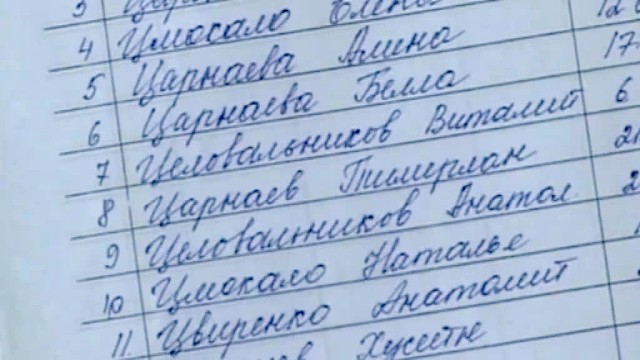 3 Царн
4 Цмокало Елена 12
5 Царнаева Амина 17
6 Царнаева Белла 6
7 Целовальников Виталий
8 Царнаев Тимерлан 2
9 Целовальников Анатол. 2
10 Цмокало Наталье 1
11. Цвиренко Анатолий
Хусейн